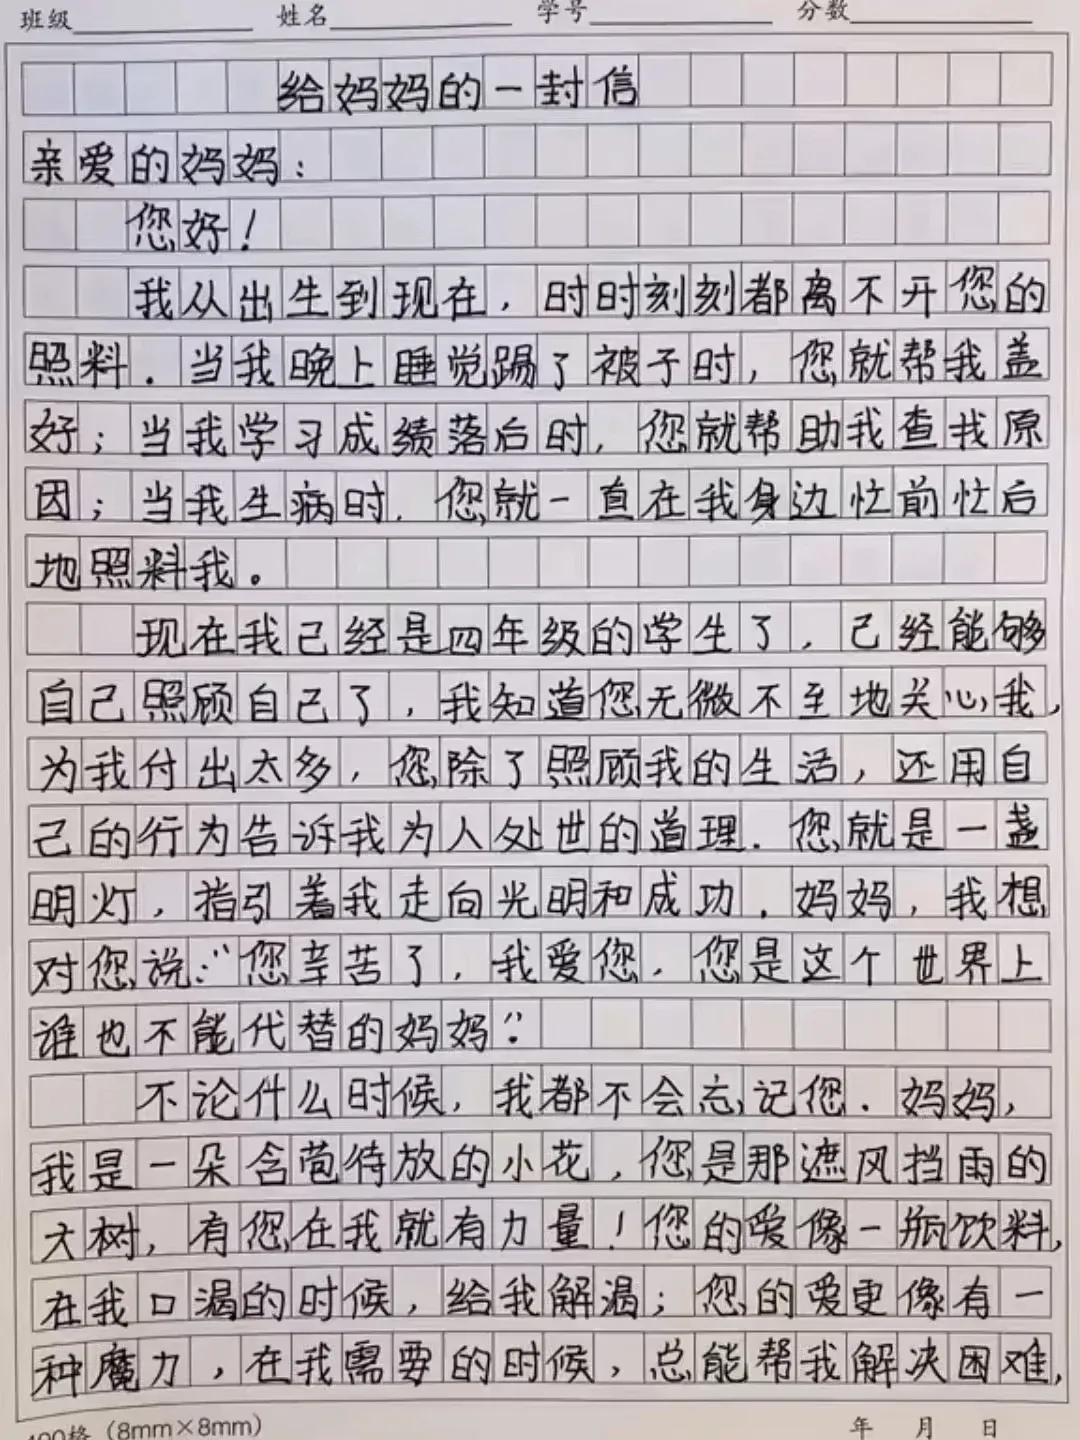 班级 姓名 学号 分数
给妈妈的一封信
亲爱的妈妈：
您好！
我从出生到现在，时时刻刻都离不开您的
照料．当我晚上睡觉踢了被子时，您就帮我盖
好；当我学习成绩落后时，您就帮助我查找原
因；当我生病时．您就一直在我身边忙前忙后
地照料我。
现在我已经是四年级的学生了，已经能够
自己照顾自己了，我知道您无微不至地关心我，
为我付出太多，您除了照顾我的生活，还用自
己的行为告诉我为人处世的道理．您就是一盏
明灯，指引着我走向光明和成功．妈妈，我想
对您说：“您辛苦了，我爱您，您是这个世界上
谁也不能代替的妈妈．”
不论什么时候，我都不会忘记您．妈妈，
我是一朵含苞待放的小花，您是那遮风挡雨的
大树，有您在我就有力量！您的爱像一瓶饮料，
在我口渴的时候，给我解渴；您的爱更像有一
种魔力，在我需要的时候，总能帮我解决困难，
400格（8mm×8mm） 年 月 日